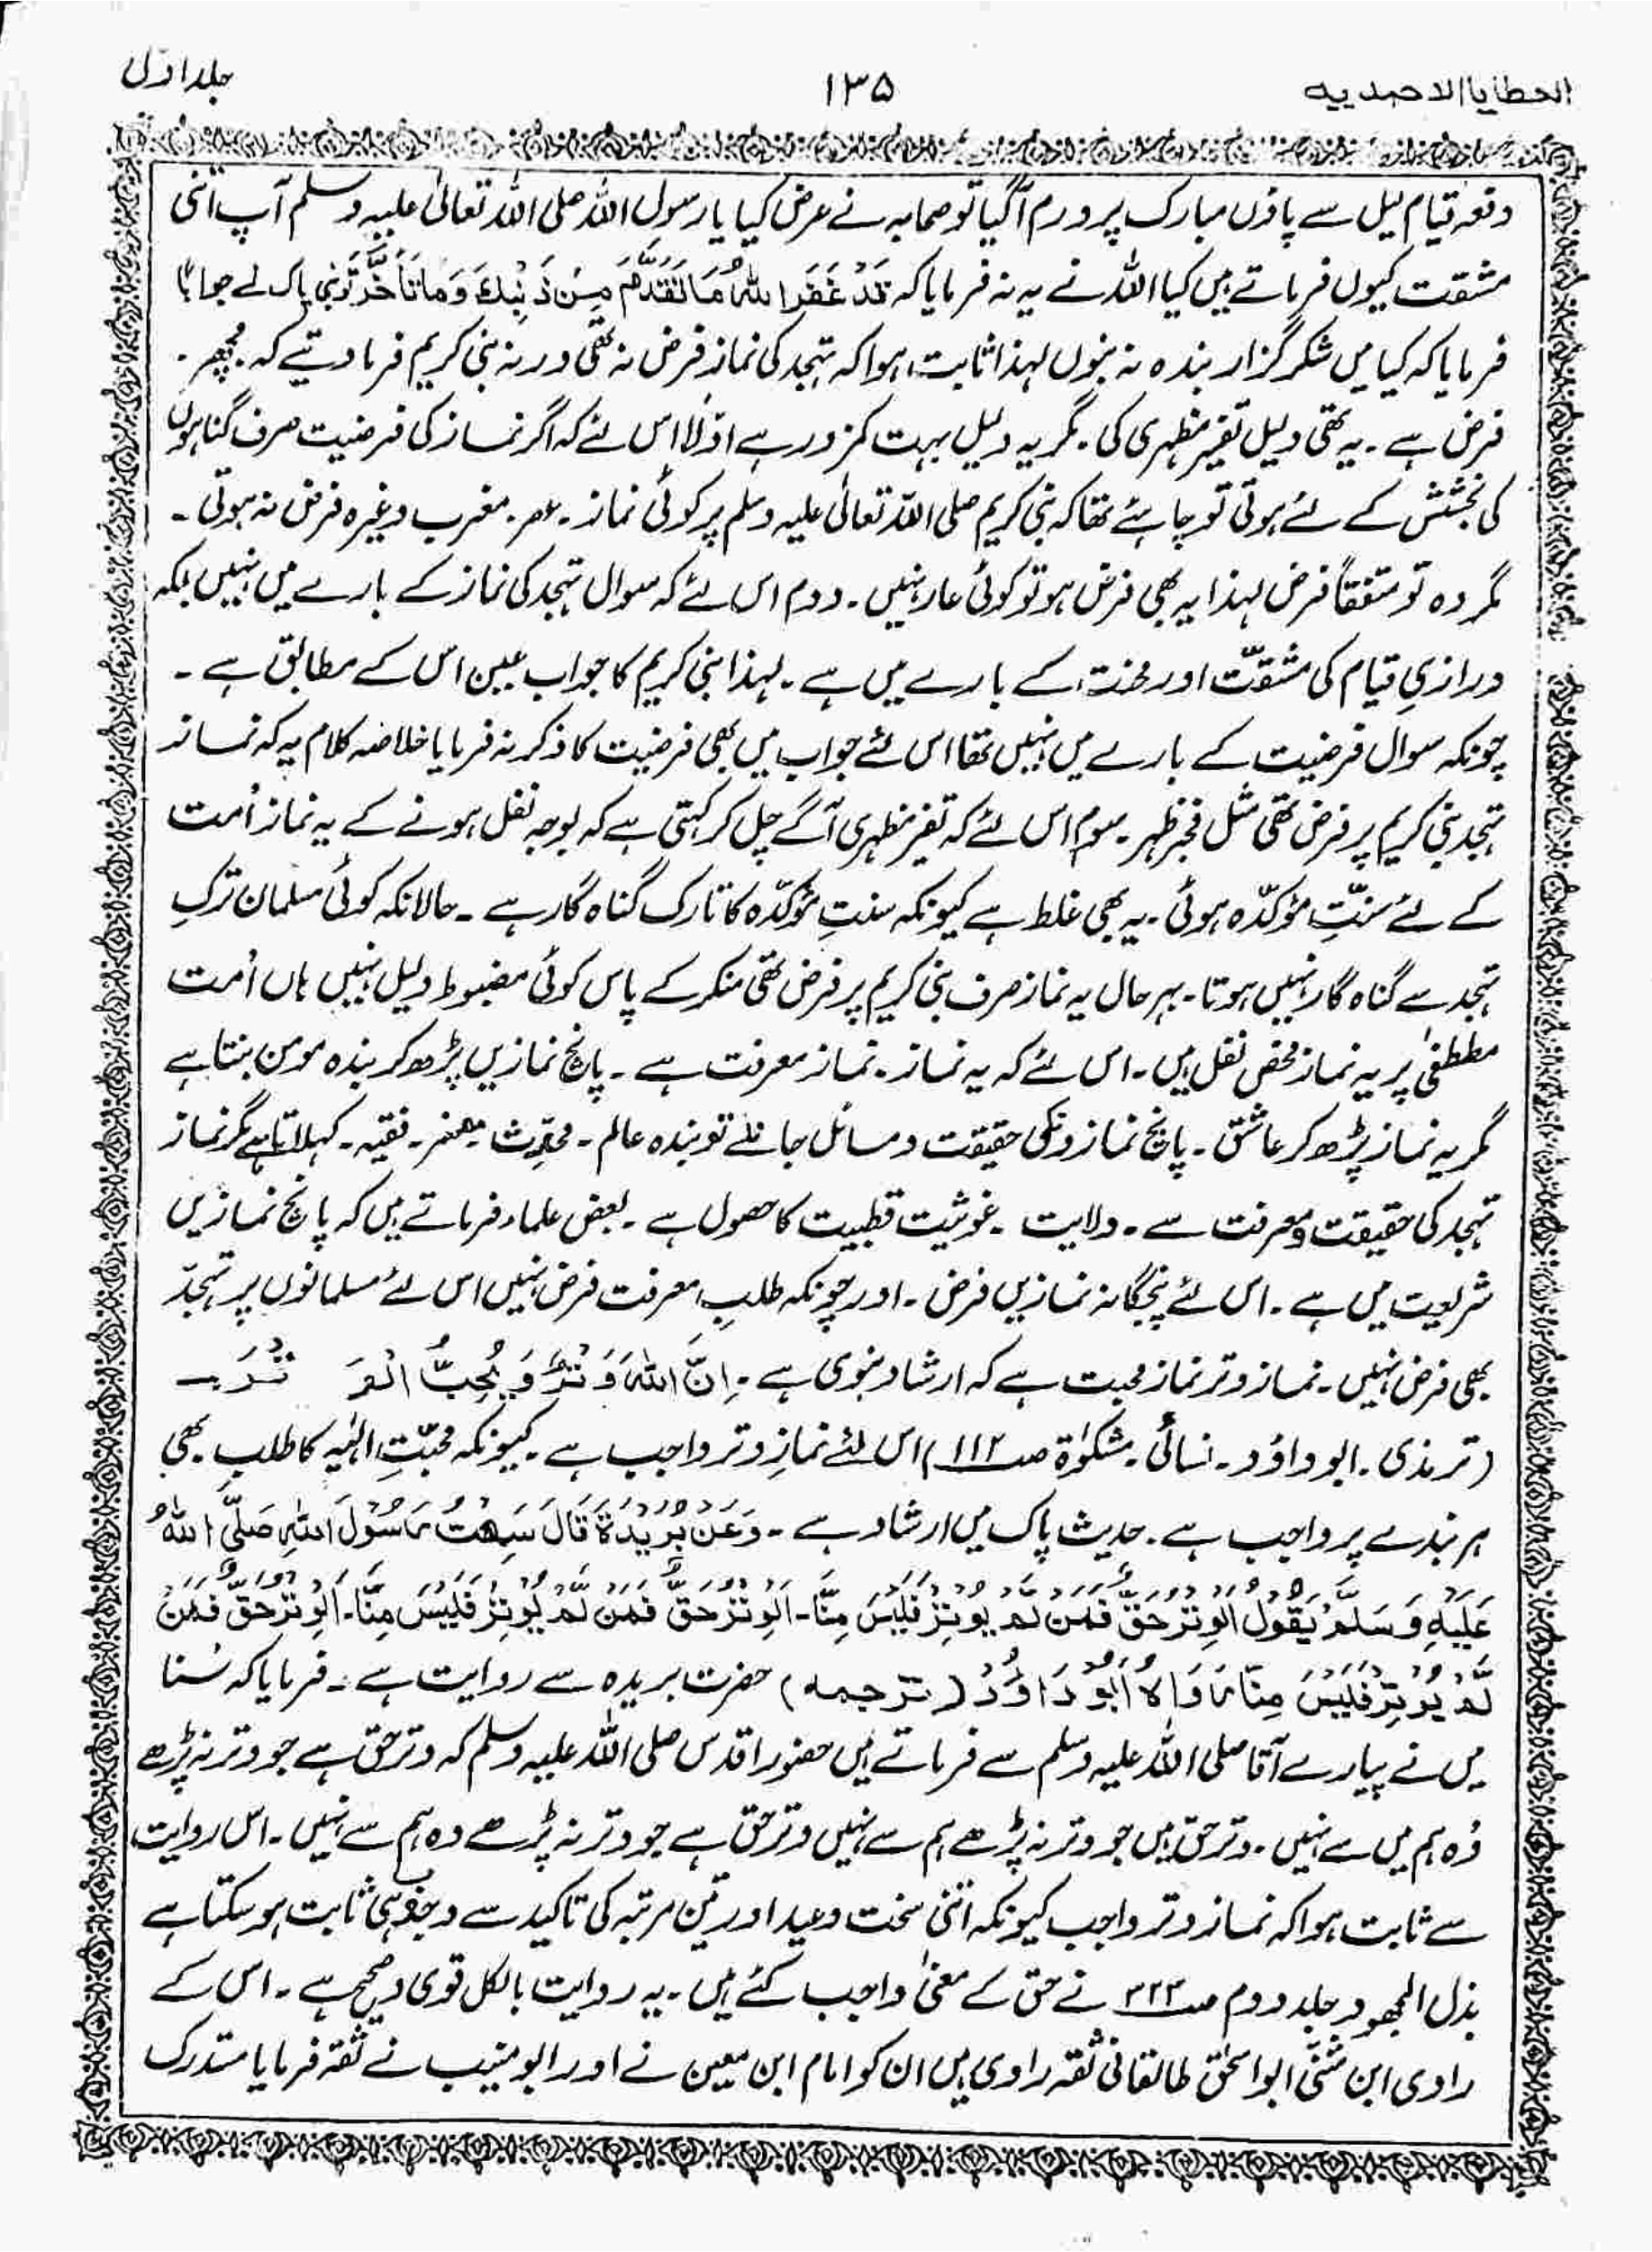 العطایا الاحمدیه ۱۳۵ جلد اوّل
دفعہ قیام لیل سے پاؤں مبارک پر ورم آگیا تو صحابہ نے عرض کیا یا رسول اللہ صلی اللہ تعالیٰ علیہ وسلم آپ اتنی
مشقت کیوں فرماتے ہیں کیا اللہ نے یہ نہ فرمایا کہ قَدْ غَفَرَ اللهُ مَا تَقَدَّمَ مِنْ ذَنْبِكَ وَمَا تَأَخَّرَ تو نبی پاک نے جواباً
فرمایا کہ کیا میں شکر گزار بندہ نہ بنوں لہذا ثابت ہوا کہ تہجد کی نماز فرض نہ تھی ورنہ نبی کریم فرما دیتے کہ مجھ پر ۔
فرض ہے ۔ یہ تھی دلیل تفسیر مظہری کی ۔ مگر یہ دلیل بہت کمزور ہے اوّلاً اس لئے کہ اگر نماز کی فرضیت صرف گناہوں
کی بخشش کے لئے ہوتی تو چاہئے تھا کہ نبی کریم صلی اللہ تعالیٰ علیہ وسلم پر کوئی نماز ۔ عصر ۔ مغرب وغیرہ فرض نہ ہوتی ۔
مگر وہ تو متفقاً فرض لہذا یہ بھی فرض ہو تو کوئی عار نہیں ۔ دوم اس لئے کہ سوال تہجد کی نماز کے بارے میں نہیں بلکہ
درازیِ قیام کی مشقّت اور محنت کے بارے میں ہے ۔ لہذا نبی کریم کا جواب عین اس کے مطابق ہے ۔
چونکہ سوال فرضیت کے بارے میں نہیں تھا اس لئے جواب میں بھی فرضیت کا ذکر نہ فرمایا خلاصہ کلام یہ کہ نماز
تہجد نبی کریم پر فرض تھی مثل فجر ظہر ۔ سوم اس لئے کہ تفسیر مظہری آگے چل کر کہتی ہے کہ بوجہ نفل ہونے کے یہ نماز اُمت
کے لئے سنّتِ مؤکدّہ ہوئی ۔ یہ بھی غلط ہے کیونکہ سنتِ مؤکدّہ کا تارک گناہ گار ہے ۔ حالانکہ کوئی مسلمان ترکِ
تہجد سے گناہ گار نہیں ہوتا ۔ بہرحال یہ نماز صرف نبی کریم پر فرض تھی منکر کے پاس کوئی مضبوط دلیل نہیں ہاں اُمت
مططفیٰ پر یہ نماز محض نفل ہیں ۔ اس لئے کہ یہ نماز ۔ نماز معرفت ہے ۔ پانچ نمازیں پڑھ کر بندہ مومن بنتا ہے
مگر یہ نماز پڑھ کر عاشق ۔ پانچ نمازونکی حقیقت و مسائل جانلے تو بندہ عالم ۔ محدّث ۔ مفسر ۔ فقیہ ۔ کہلاتا ہے مگر نماز
تہجد کی حقیقت و معرفت سے ۔ ولایت ۔ غوثیت قطبیت کا حصول ہے ۔ بعض علماء فرماتے ہیں کہ پانچ نمازیں
شریعت میں ہے ۔ اس لئے پنجگانہ نمازیں فرض ۔ اور چونکہ طلبِ معرفت فرض نہیں اس لئے مسلمانوں پر تہجدّ
بھی فرض نہیں ۔ نماز وتر نماز محبت ہے کہ ارشاد نبوی ہے ۔ اِنَّ اللهَ وَتْرٌ وَ يُحِبُّ الْوَ تْرَ ۔
(ترمذی ۔ ابو داؤد ۔ نسائی ۔ مشکوٰۃ صـ ۱۱۲) اس لئے نمازِ وتر واجب ہے ۔ کیونکہ محبّتِ الہٰیہ کا طلب بھی
ہر بندے پر واجب ہے ۔ حدیث پاک میں ارشاد ہے ۔ وَعَنْ بُرَيْدَةَ قَالَ سَمِعْتُ رَسُوْلَ اللهِ صَلَّى اللهُ
عَلَيْهِ وَسَلَّمَ يَقُوْلُ الْوِتْرُ حَقٌّ فَمَنْ لَّمْ يُوْتِرْ فَلَيْسَ مِنَّا ۔ اَلْوِتْرُ حَقٌّ فَمَنْ لَّمْ يُوْتِرْ فَلَيْسَ مِنَّا ۔ اَلْوِتْرُ حَقٌّ فَمَنْ
لَّمْ يُوْتِرْ فَلَيْسَ مِنَّا رَوَاهُ اَبُوْ دَاوٗدَ (ترجمہ) حضرت بریدہ سے روایت ہے ۔ فرمایا کہ سُنا
میں نے پیارے آقا صلی اللہ علیہ وسلم سے فرماتے ہیں حضور اقدس صلی اللہ علیہ وسلم کہ وتر حق ہے جو وتر نہ پڑھے
وُہ ہم میں سے نہیں ۔ وتر حق ہیں جو وتر نہ پڑھے ہم سے نہیں وتر حق ہے جو وتر نہ پڑھے وہ ہم سے نہیں ۔ اس روایت
سے ثابت ہوا کہ نماز وتر واجب کیونکہ اتنی سخت وعید اور تین مرتبہ کی تاکید سے وجوب ہی ثابت ہو سکتا ہے
بذل المجہود جلد دوم صـ ۳۲۳ نے حق کے معنیٰ واجب کئے ہیں ۔ یہ روایت بالکل قوی و صحیح ہے ۔ اس کے
راوی ابن مثنّٰی ابو اسحٰق طالقانی ثقہ راوی ہیں ان کو امام ابن معین نے اور ابو منیب نے ثقہ فرمایا مستدرک